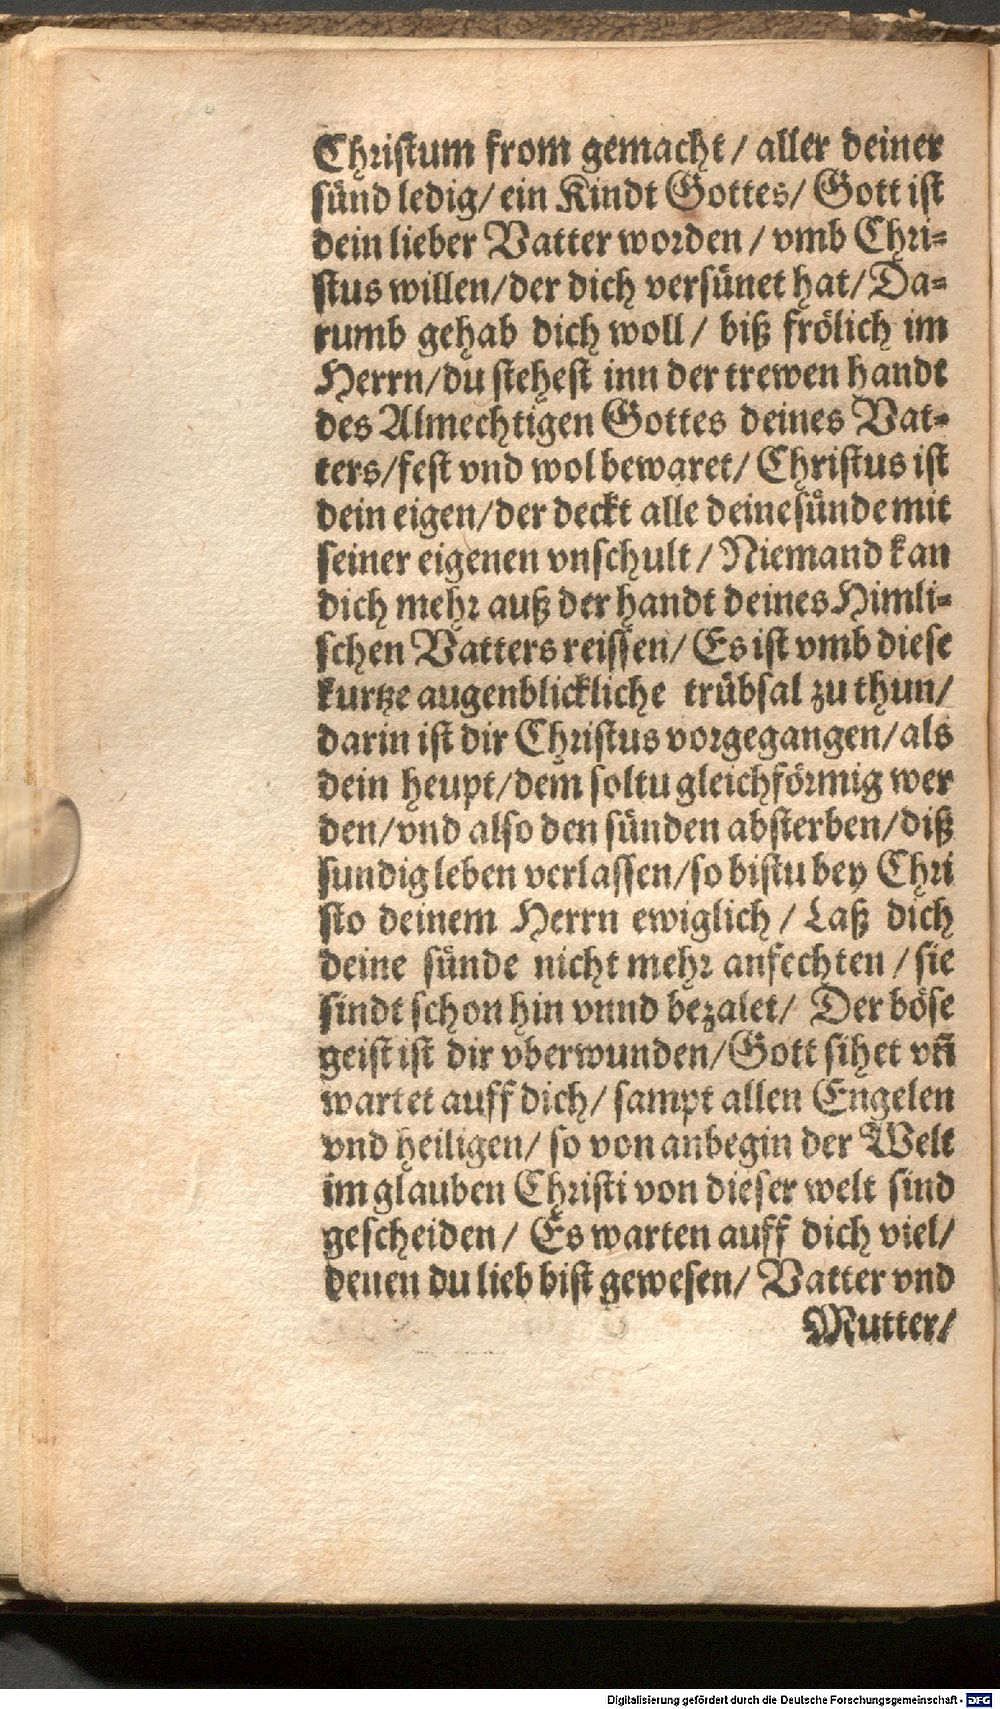 Christum from gemacht/ aller deiner
sünd ledig/ ein Kindt Gottes/ Gott ist
dein lieber Vatter worden/ vmb Chri-
stus willen/der dich versünet hat/ Da-
rumb gehab dich woll/ biß frölich im
Herrn/du stehest inn der trewen handt
des Almechtigen Gottes deines Vat-
ters/fest vnd wol bewaret/ Christus ist
dein eigen/der deckt alle deine sünde mit
seiner eigenen vnschult/ Niemand kan
dich mehr auß der handt deines Himli-
schen Vatters reissen/ Es ist vmb diese
kurtze augenblickliche trübsal zu thun/
darin ist dir Christus vorgegangen/als
dein heupt/dem soltu gleichförmig wer
den/vnd also den sünden absterben/diß
sundig leben verlassen/so bistu bey Chri
sto deinem Herrn ewiglich/ Laß dich
deine sünde nicht mehr anfechten/ sie
sindt schon hin vnnd bezalet/ Der böse
geist ist dir vberwunden/Gott sihet vñ
wartet auff dich/ sampt allen Engelen
vnd heiligen/ so von anbegin der Welt
im glauben Christi von dieser welt sind
gescheiden/ Es warten auff dich viel/
denen du lieb bist gewesen/ Vatter vnd
Mutter/
Digitalisierung gefördert durch die Deutsche Forschungsgemeinschaft - DFG